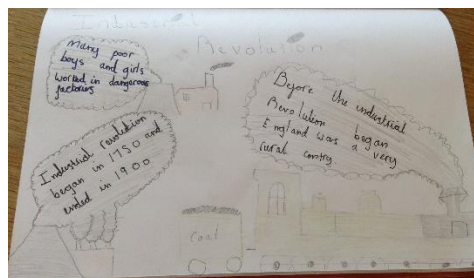 Industrial
Revolution
Many poor
boys and girls
worked in dangerous
factories
Before the industrial
Revolution began
England was a very
rural contry
Industrial revolution
began in 1750 and
ended in 1900
Coal